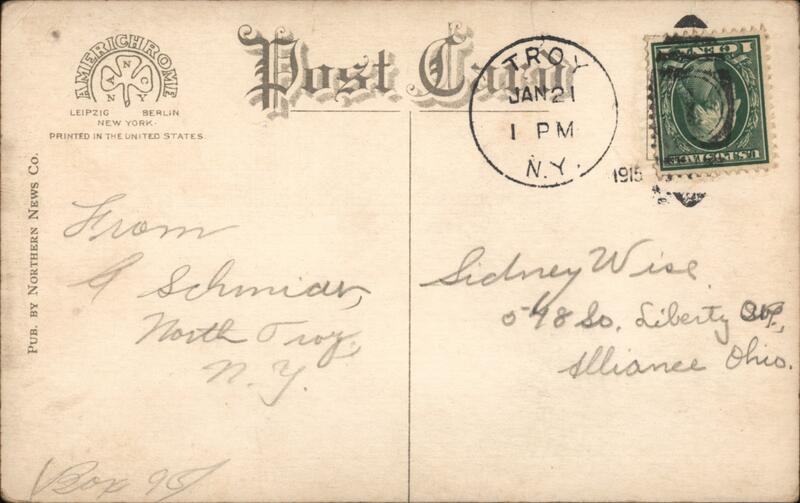 AMERICHROME
ANCY
LEIPZIG BERLIN
NEW YORK.
PRINTED IN THE UNITED STATES.
Post Card
TROY
JAN 21
1 PM
N.Y.
1915
1 CENT 1
U.S. POSTAGE
PUB. BY NORTHERN NEWS CO.
From
Schmidt,
North Troy,
N. Y.
Box
Sidney Wise
548 So. Liberty Ave.,
Alliance Ohio.